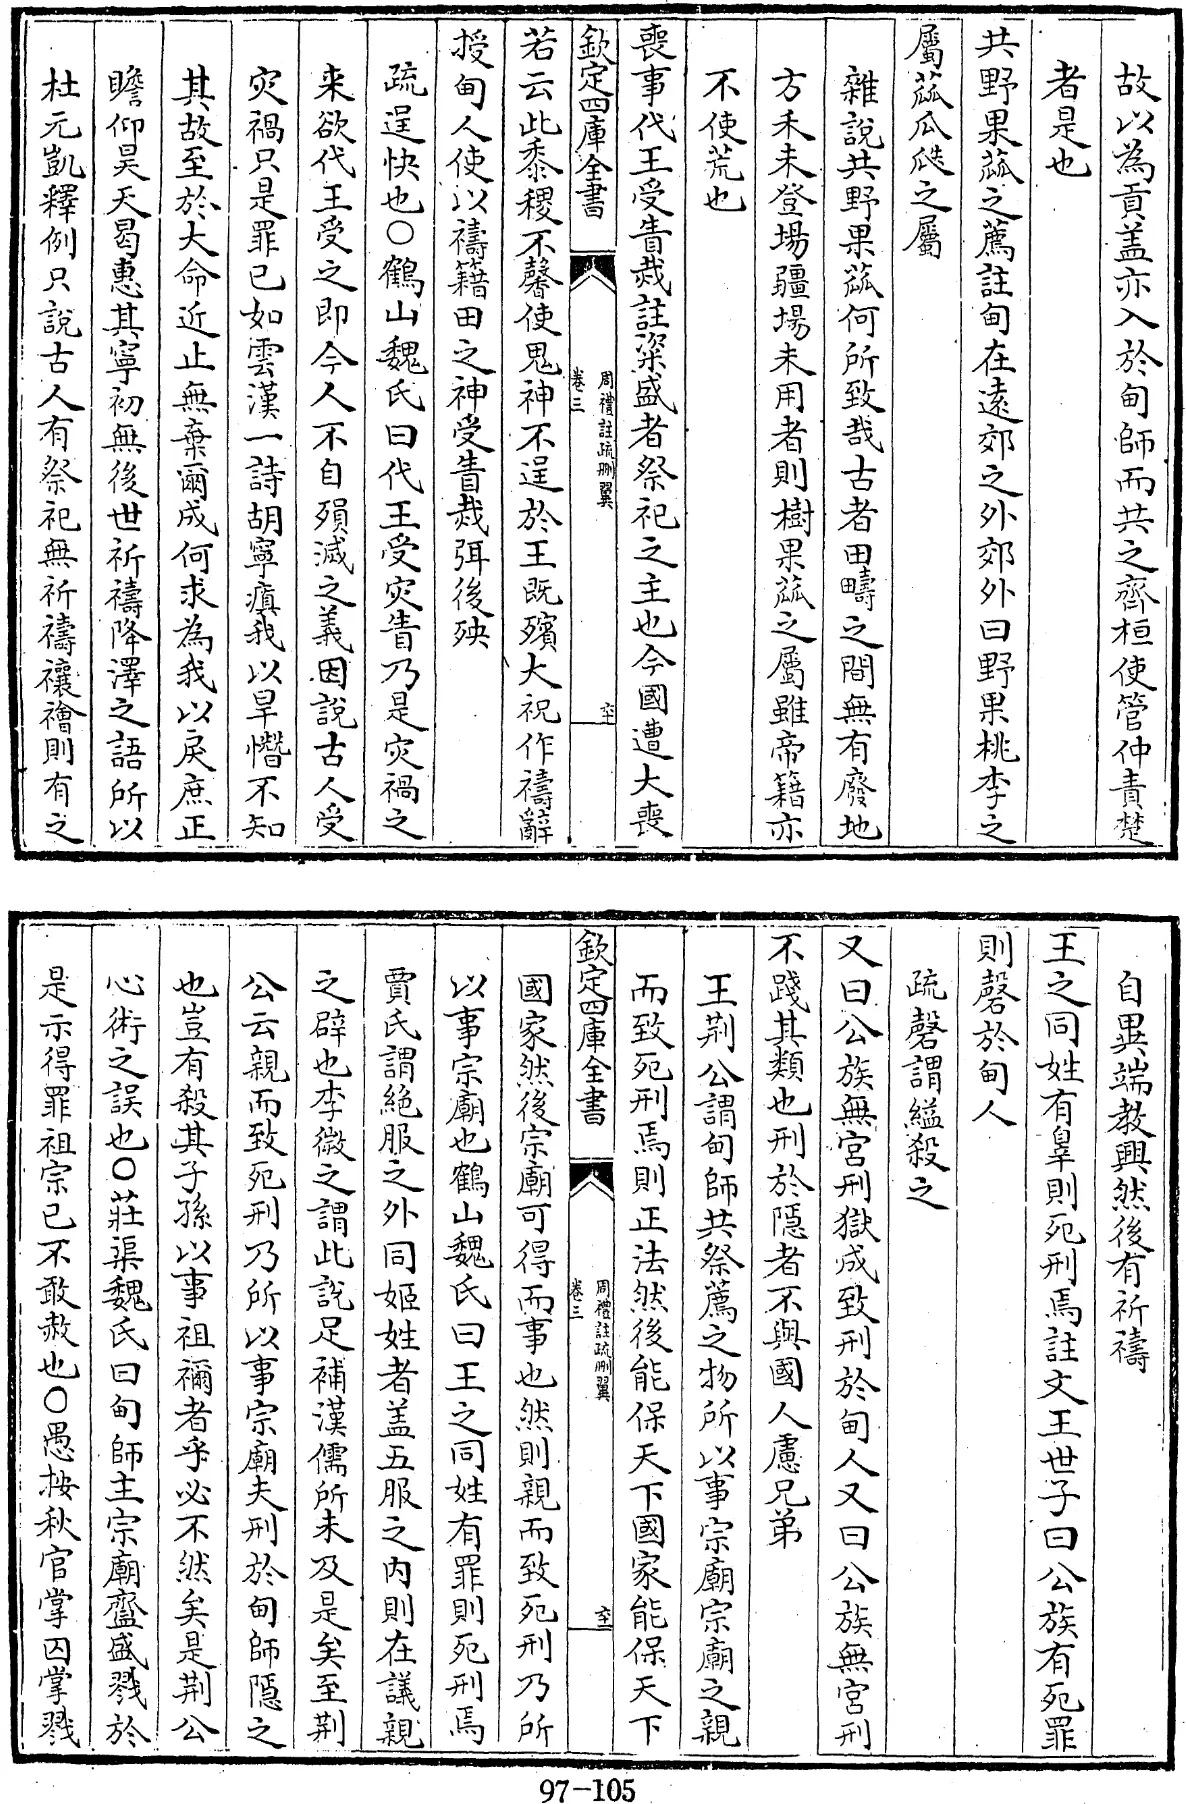 故以為貢盖亦入於甸師而共之齊桓使管仲責楚
者是也
共野果蓏之薦註甸在遠郊之外郊外曰野果桃李之
屬蓏瓜瓞之屬
雜說共野果蓏何所致哉古者田疇之間無有廢地
方禾未登場疆場未用者則樹果蓏之屬雖帝籍亦
不使荒也
喪事代王受眚烖註粢盛者祭祀之主也今國遭大喪
欽定四庫全書
周禮註疏刪翼
卷三
若云此黍稷不馨使鬼神不逞於王既殯大祝作禱辭
授甸人使以禱籍田之神受眚烖弭後殃
疏逞快也○鶴山魏氏曰代王受灾眚乃是灾禍之
来欲代王受之即今人不自殞滅之義因說古人受
灾禍只是罪已如雲漢一詩胡寧瘨我以旱憯不知
其故至於大命近止無棄爾成何求為我以戾庶正
瞻仰昊天曷惠其寧初無後世祈禱降澤之語所以
杜元凱釋例只說古人有祭祀無祈禱禳禬則有之
自異端教興然後有祈禱
王之同姓有辠則死刑焉註文王世子曰公族有死罪
則磬於甸人
疏磬謂縊殺之
又曰公族無宮刑獄成致刑於甸人又曰公族無宮刑
不踐其類也刑於隱者不與國人慮兄弟
王荆公謂甸師共祭薦之物所以事宗廟宗廟之親
而致死刑焉則正法然後能保天下國家能保天下
欽定四庫全書
周禮註疏刪翼
卷三
國家然後宗廟可得而事也然則親而致死刑乃所
以事宗廟也鶴山魏氏曰王之同姓有罪則死刑焉
賈氏謂絶服之外同姬姓者盖五服之内則在議親
之辟也李微之謂此説足補漢儒所未及是矣至荆
公云親而致死刑乃所以事宗廟夫刑於甸師隱之
也豈有殺其子孫以事祖禰者乎必不然矣是荆公
心術之誤也○莊渠魏氏曰甸師主宗廟齍盛戮於
是示得罪祖宗已不敢赦也○愚按秋官掌囚掌戮
97-105